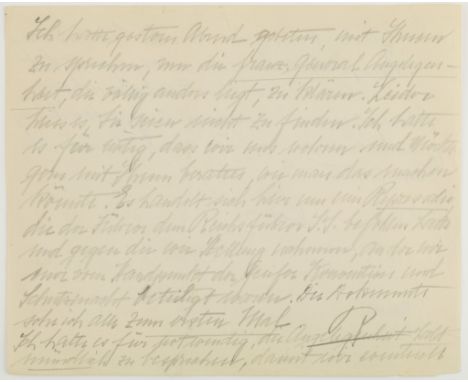 Ich hatte gestern Abend gebeten, mit Ihnen
zu sprechen, um die franz. General Angelegen-
heit, die völlig anders liegt, zu klären. Leider
hiess es, Sie seien nicht zu finden. Ich halte
es für nötig, dass wir uns und
mit Ihnen beraten, wie man das machen
könnte. Es handelt sich hier um ein Repressalie
die der Führer dem Reichsführer S.S. befohlen hatte
und gegen die wir Stellung nahmen, an der wir
nur vom Standpunkt der Genfer Konvention und
Schutzmacht beteiligt waren. Die Dokumente
sehe ich alle zum ersten Mal.
Ich halte es für notwendig, die Angelegenheit
mündlich zu besprechen, damit wir eventuell